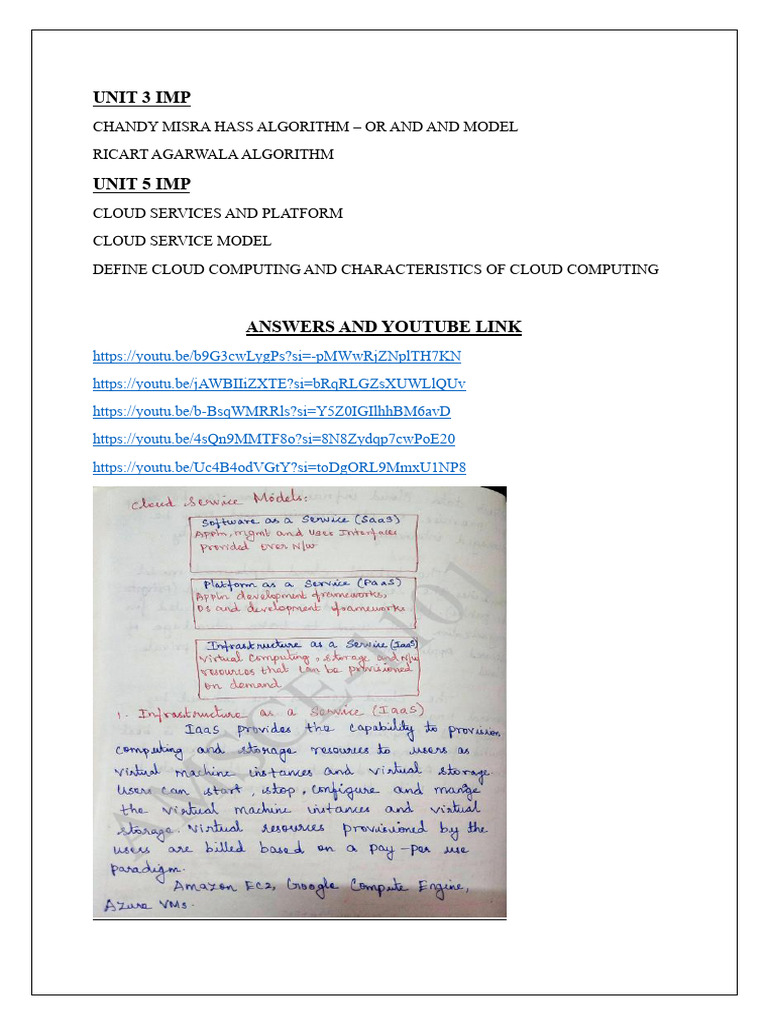 UNIT 3 IMP
CHANDY MISRA HASS ALGORITHM – OR AND AND MODEL
RICART AGARWALA ALGORITHM
UNIT 5 IMP
CLOUD SERVICES AND PLATFORM
CLOUD SERVICE MODEL
DEFINE CLOUD COMPUTING AND CHARACTERISTICS OF CLOUD COMPUTING
ANSWERS AND YOUTUBE LINK
https://youtu.be/b9G3cwLygPs?si=-pMWwRjZNplTH7KN
https://youtu.be/jAWBIIiZXTE?si=bRqRLGZsXUWLlQUv
https://youtu.be/b-BsqWMRRls?si=Y5Z0IGIlhhBM6avD
https://youtu.be/4sQn9MMTF8o?si=8N8Zydqp7cwPoE20
https://youtu.be/Uc4B4odVGtY?si=toDgORL9MmxU1NP8
Cloud Service Models:
Software as a Service (SaaS)
Appln, mgmt and User Interfaces
provided over N/w
Platform as a Service (PaaS)
Appln development frameworks,
OS and development frameworks
Infrastructure as a Service (IaaS)
Virtual Computing, storage and N/w
resources that can be provisioned
on demand
1. Infrastructure as a Service (IaaS)
IaaS provides the capability to provision
computing and storage resources to users as
virtual machine instances and virtual storage
Users can start, stop, configure and manage
the virtual machine instances and virtual
storage. Virtual resources provisioned by the
users are billed based on a pay-per use
paradigm.
Amazon EC2, Google Compute Engine,
Azure VMs.